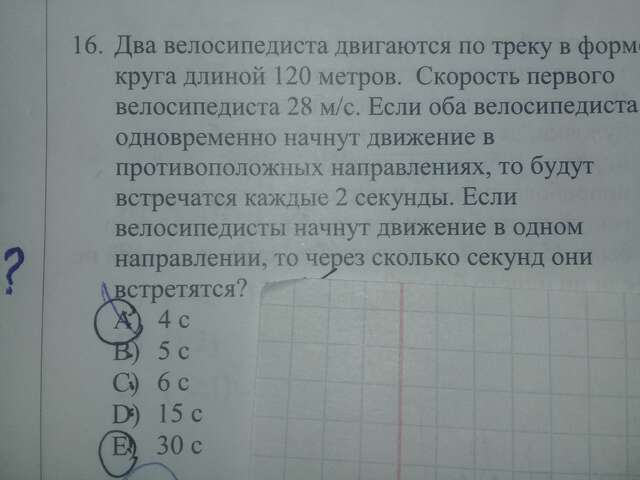 16. Два велосипедиста двигаются по треку в форме
круга длиной 120 метров. Скорость первого
велосипедиста 28 м/с. Если оба велосипедиста
одновременно начнут движение в
противоположных направлениях, то будут
встречатся каждые 2 секунды. Если
велосипедисты начнут движение в одном
направлении, то через сколько секунд они
встретятся?
?
A) 4 с
B) 5 с
C) 6 с
D) 15 с
E) 30 с